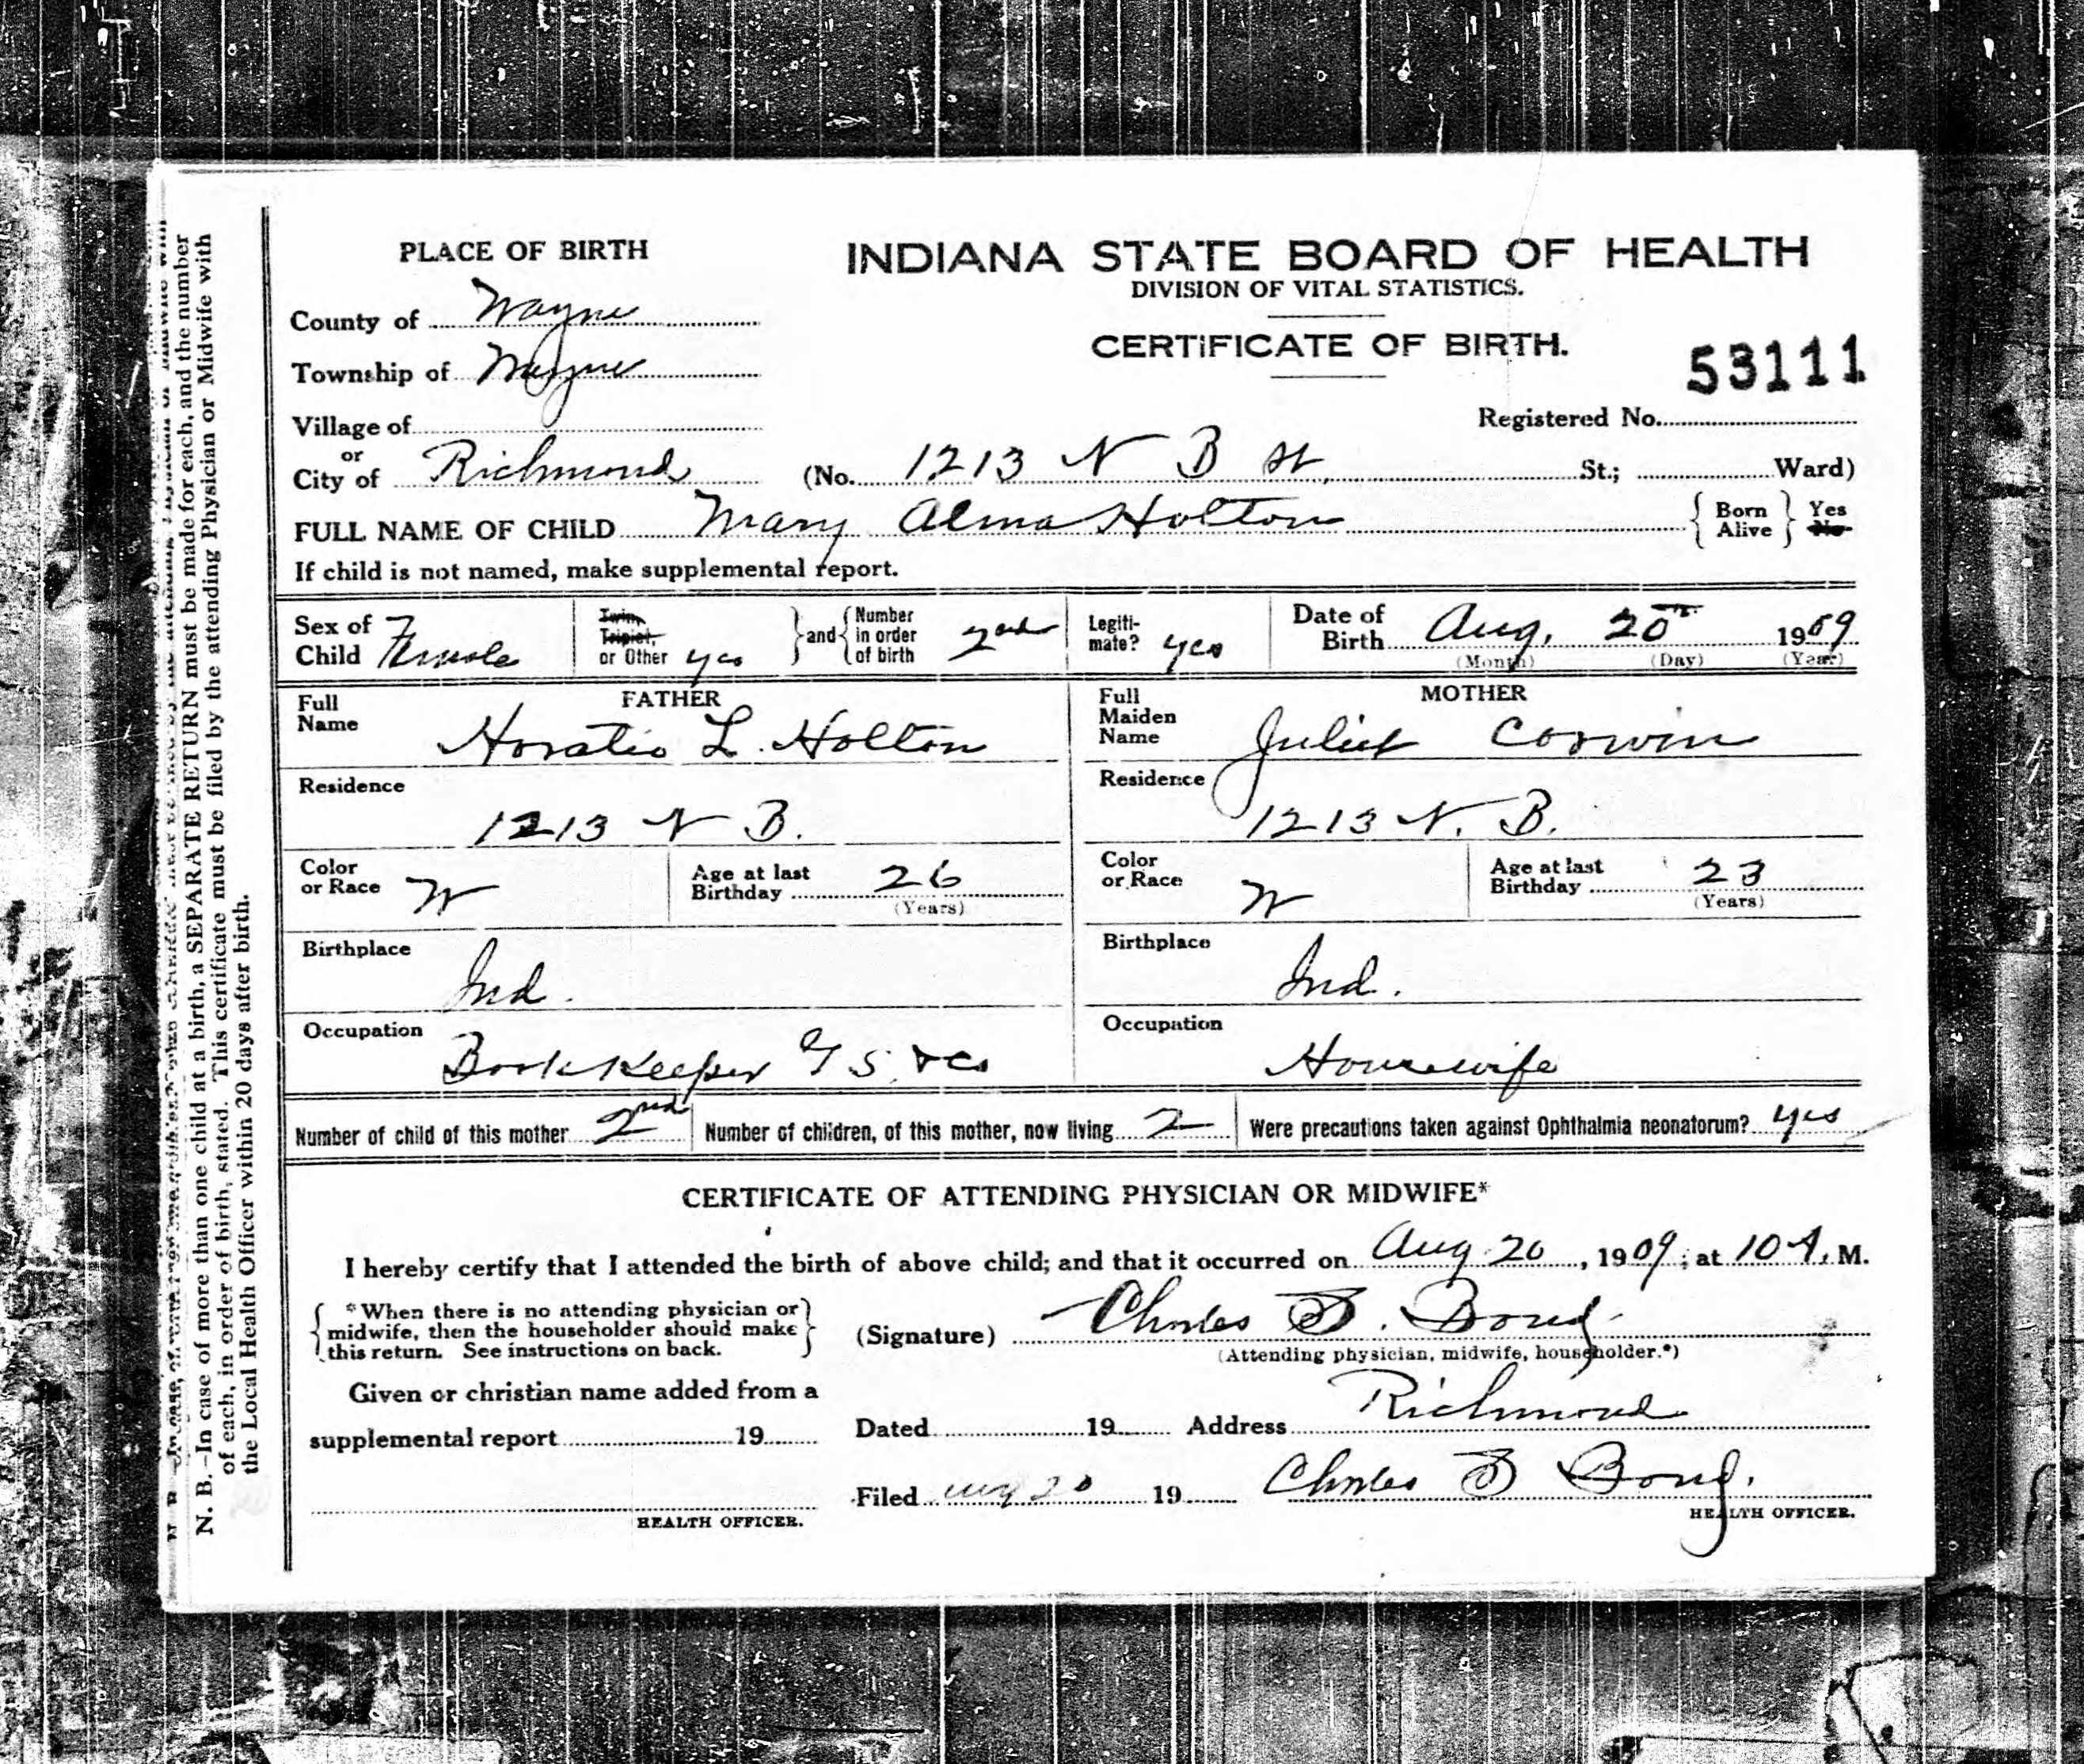 PLACE OF BIRTH
County of Wayne
Township of Wayne
Village of
or
City of Richmond
INDIANA STATE BOARD OF HEALTH
DIVISION OF VITAL STATISTICS.
CERTIFICATE OF BIRTH.
53111
Registered No.
(No. 1213 N B St, St.; Ward)
FULL NAME OF CHILD Mary Alma Holton { Born Alive } Yes No
If child is not named, make supplemental report.
Sex of Child Female
Twin, Triplet, or Other yes } and { Number in order of birth 2nd
Legiti-mate? yes
Date of Birth Aug. 20th 1909
(Month) (Day) (Year)
FATHER
Full Name Horatio L. Holton
Residence
1213 N B.
Color or Race W
Age at last Birthday 26
(Years)
Birthplace
Ind.
Occupation
Bookkeeper G S. & Co
MOTHER
Full Maiden Name Juliet Corwin
Residence
1213 N. B.
Color or Race W
Age at last Birthday 23
(Years)
Birthplace
Ind.
Occupation
Housewife
Number of child of this mother 2nd Number of children, of this mother, now living 2 Were precautions taken against Ophthalmia neonatorum? yes
CERTIFICATE OF ATTENDING PHYSICIAN OR MIDWIFE*
I hereby certify that I attended the birth of above child; and that it occurred on Aug 20, 1909; at 10 A. M.
{ *When there is no attending physician or }
midwife, then the householder should make
this return. See instructions on back.
(Signature) Charles S. Bond
(Attending physician, midwife, householder.*)
Given or christian name added from a
supplemental report 19
HEALTH OFFICER.
Dated 19 Address Richmond
Filed Aug 20 19 Charles S Bond.
HEALTH OFFICER.
N. B.—In case of more than one child at a birth, a SEPARATE RETURN must be made for each, and the number
of each, in order of birth, stated. This certificate must be filed by the attending Physician or Midwife with
the Local Health Officer within 20 days after birth.